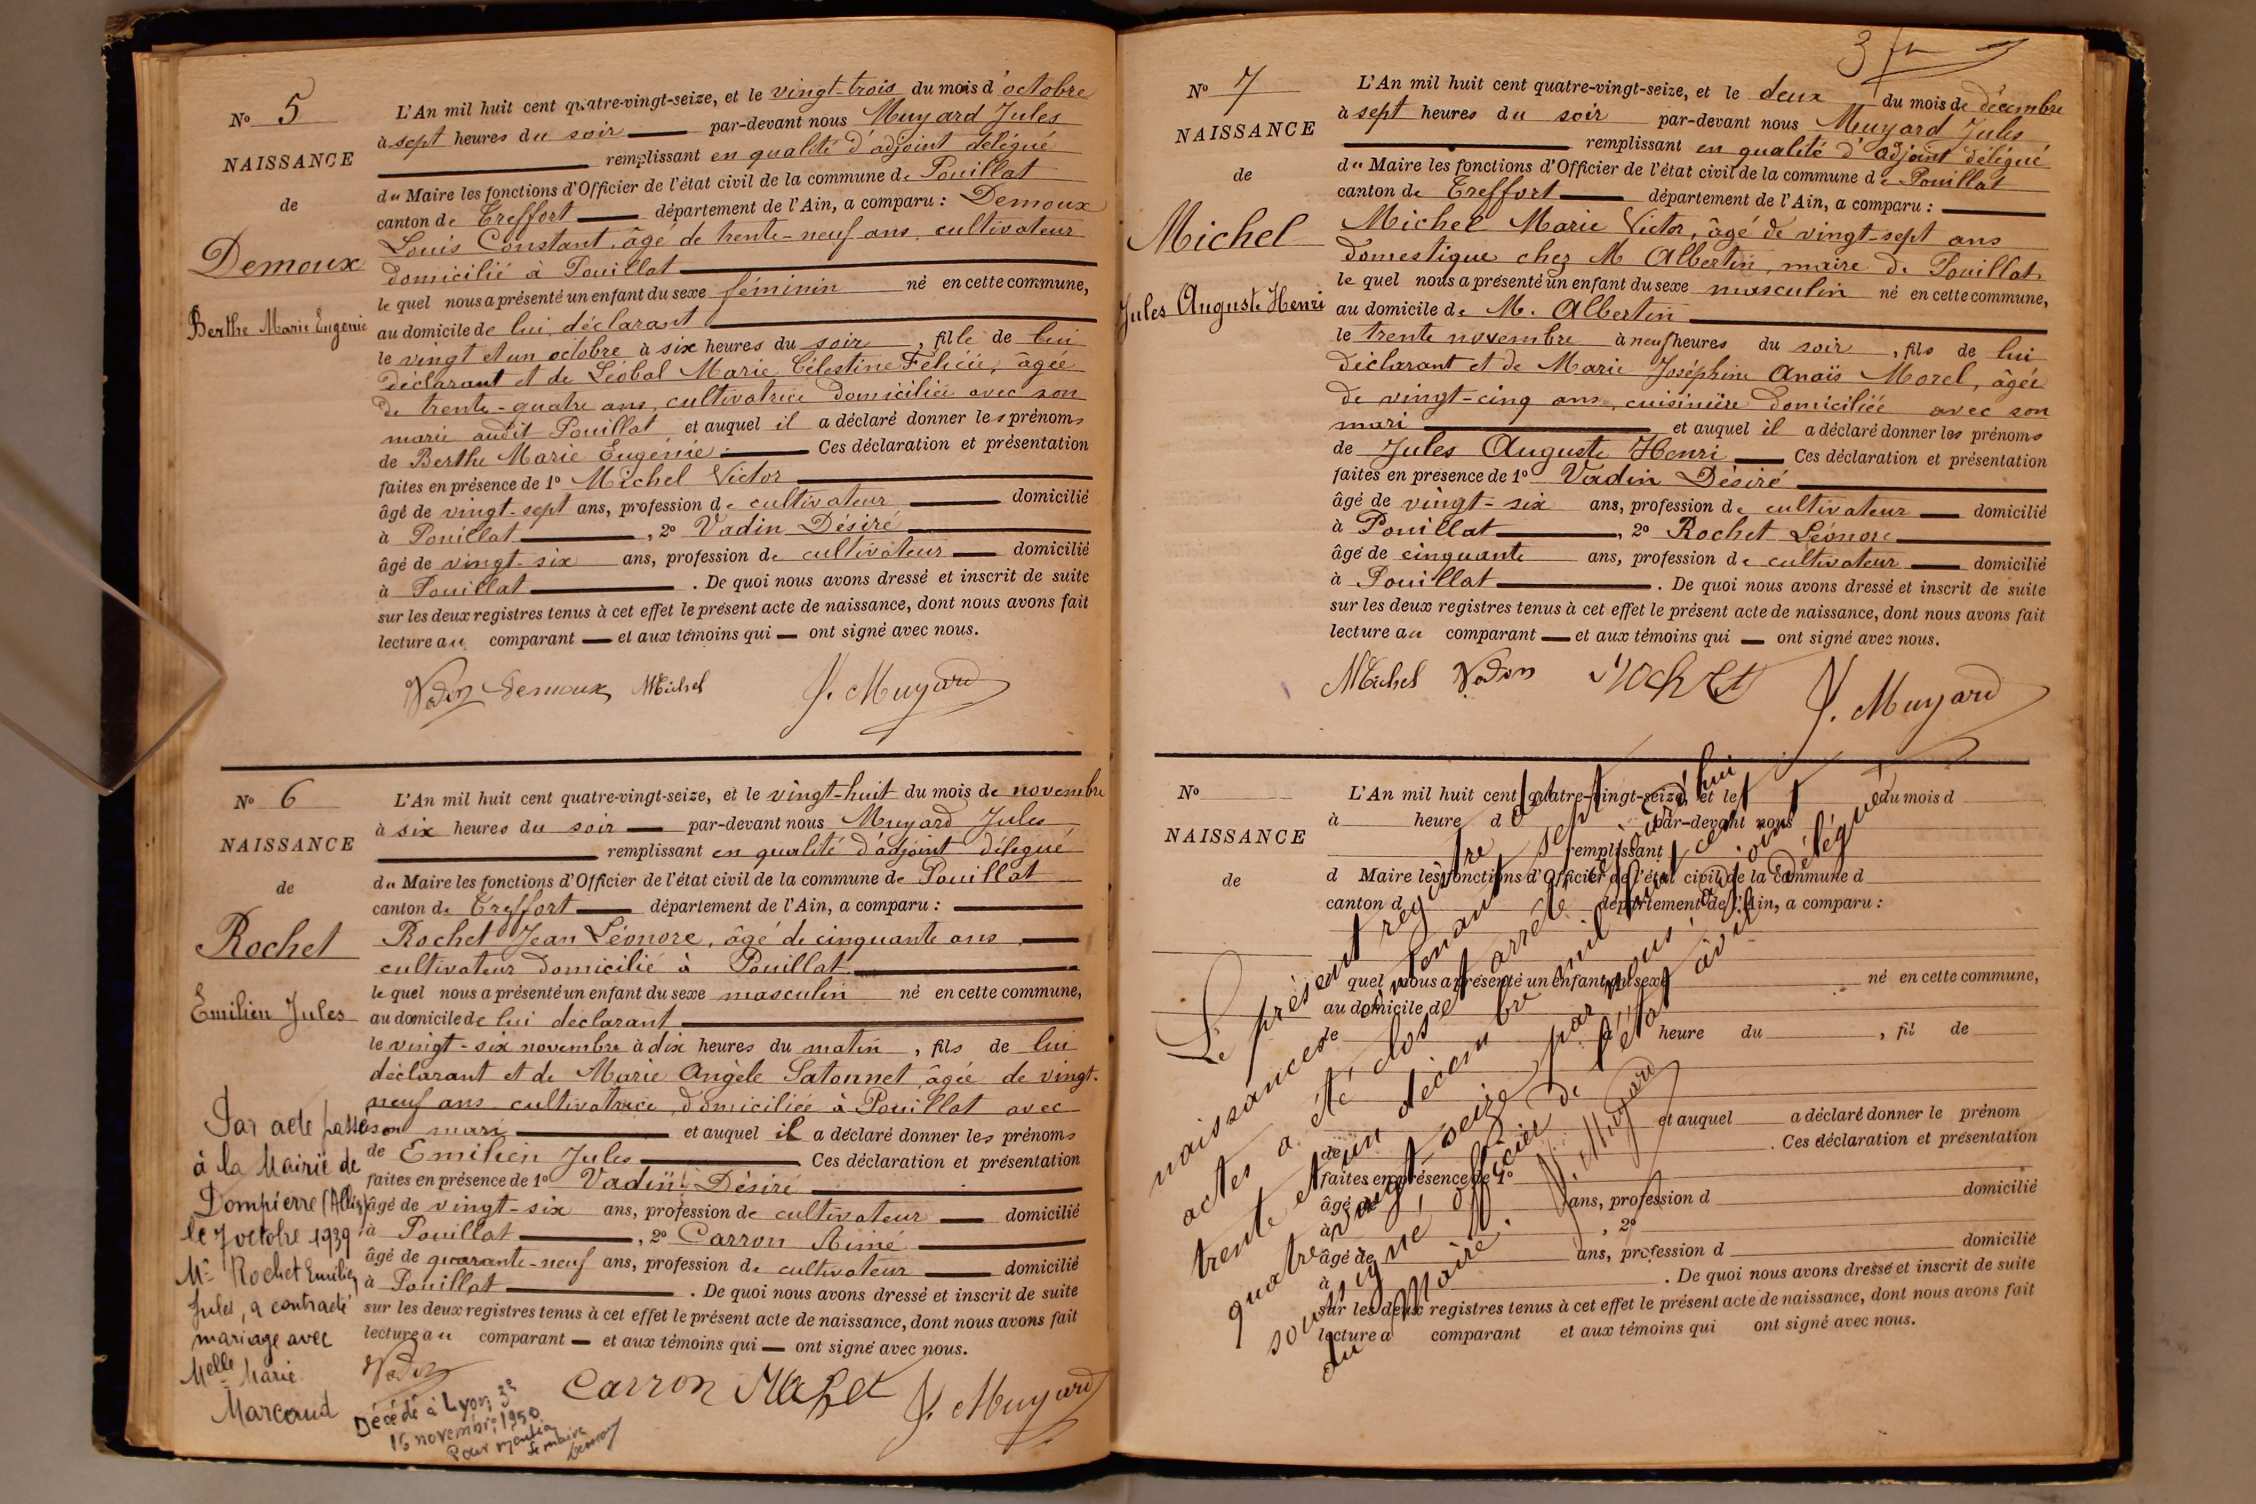 N° 5
NAISSANCE
de
Demoux
Berthe Marie Eugénie
L'An mil huit cent quatre-vingt-seize, et le vingt-trois du mois d'octobre
à sept heures du soir par-devant nous Muyard Jules
remplissant en qualité d'adjoint délégué
du Maire les fonctions d'Officier de l'état civil de la commune de Pouillat
canton de Treffort département de l'Ain, a comparu : Demoux
Louis Constant, âgé de trente-neuf ans, cultivateur
domicilié à Pouillat
le quel nous a présenté un enfant du sexe féminin né en cette commune,
au domicile de lui, déclarant
le vingt et un octobre à six heures du soir, fille de lui
déclarant et de Léobal Marie Célestine Félicie, âgée
de trente-quatre ans, cultivatrice domiciliée avec son
marie audit Pouillat et auquel il a déclaré donner les prénoms
de Berthe Marie Eugénie. Ces déclaration et présentation
faites en présence de 1° Michel Victor
âgé de vingt-sept ans, profession de cultivateur domicilié
à Pouillat, 2° Vadin Désiré
âgé de vingt-six ans, profession de cultivateur domicilié
à Pouillat. De quoi nous avons dressé et inscrit de suite
sur les deux registres tenus à cet effet le présent acte de naissance, dont nous avons fait
lecture au comparant et aux témoins qui ont signé avec nous.
Vadin Demoux Michel J. Muyard
N° 6
NAISSANCE
de
Rochet
Emilien Jules
L'An mil huit cent quatre-vingt-seize, et le vingt-huit du mois de novembre
à six heures du soir par-devant nous Muyard Jules
remplissant en qualité d'adjoint délégué
du Maire les fonctions d'Officier de l'état civil de la commune de Pouillat
canton de Treffort département de l'Ain, a comparu :
Rochet Jean Léonore, âgé de cinquante ans
cultivateur domicilié à Pouillat
le quel nous a présenté un enfant du sexe masculin né en cette commune,
au domicile de lui déclarant
le vingt-six novembre à dix heures du matin, fils de lui
déclarant et de Marie Angèle Satonnet, âgée de vingt-
neuf ans cultivatrice, domiciliée à Pouillat avec
son mari et auquel il a déclaré donner les prénoms
de Emilien Jules Ces déclaration et présentation
faites en présence de 1° Vadin Désiré
âgé de vingt-six ans, profession de cultivateur domicilié
à Pouillat, 2° Carron Aimé
âgé de quarante-neuf ans, profession de cultivateur domicilié
à Pouillat. De quoi nous avons dressé et inscrit de suite
sur les deux registres tenus à cet effet le présent acte de naissance, dont nous avons fait
lecture au comparant et aux témoins qui ont signé avec nous.
Vadin Carron Rochet J. Muyard
Par acte passé
à la Mairie de
Dompierre (Allier)
le 7 octobre 1939
Mr Rochet Emilien
Jules, a contracté
mariage avec
Melle Marie
Marcaud
Décédé à Lyon 3e
15 novembre 1950
Pour mention
Le maire
3
N° 7
NAISSANCE
de
Michel
Jules Auguste Henri
L'An mil huit cent quatre-vingt-seize, et le deux du mois de décembre
à sept heures du soir par-devant nous Muyard Jules
remplissant en qualité d'adjoint délégué
du Maire les fonctions d'Officier de l'état civil de la commune de Pouillat
canton de Treffort département de l'Ain, a comparu :
Michel Marie Victor, âgé de vingt-sept ans
domestique chez M. Albertin, maire de Pouillat
le quel nous a présenté un enfant du sexe masculin né en cette commune,
au domicile de M. Albertin
le trente novembre à neuf heures du soir, fils de lui
déclarant et de Marie Joséphine Anaïs Morel, âgée
de vingt-cinq ans, cuisinière domiciliée avec son
mari et auquel il a déclaré donner les prénoms
de Jules Auguste Henri Ces déclaration et présentation
faites en présence de 1° Vadin Désiré
âgé de vingt-six ans, profession de cultivateur domicilié
à Pouillat, 2° Rochet Léonore
âgé de cinquante ans, profession de cultivateur domicilié
à Pouillat. De quoi nous avons dressé et inscrit de suite
sur les deux registres tenus à cet effet le présent acte de naissance, dont nous avons fait
lecture au comparant et aux témoins qui ont signé avec nous.
Michel Vadin Rochet J. Muyard
N°
NAISSANCE
de
L'An mil huit cent quatre-vingt-seize, et le du mois d
à heure d par-devant nous
remplissant
d Maire les fonctions d'Officier de l'état civil de la commune d
canton d département de l'Ain, a comparu :
quel nous a présenté un enfant du sexe né en cette commune,
au domicile de
le à heure du, fil de
et auquel a déclaré donner le prénom
de . Ces déclaration et présentation
faites en présence de 1°
âgé de ans, profession d domicilié
à , 2°
âgé de ans, profession d domicilié
à . De quoi nous avons dressé et inscrit de suite
sur les deux registres tenus à cet effet le présent acte de naissance, dont nous avons fait
lecture a comparant et aux témoins qui ont signé avec nous.
Le présent registre de
naissances contenant sept
actes a été clos et arrêté aujourd'hui
trente et un décembre mil huit cent
quatre vingt-seize, par nous, adjoint délégué
soussigné, officier de l'état civil
du Maire.
J. Muyard